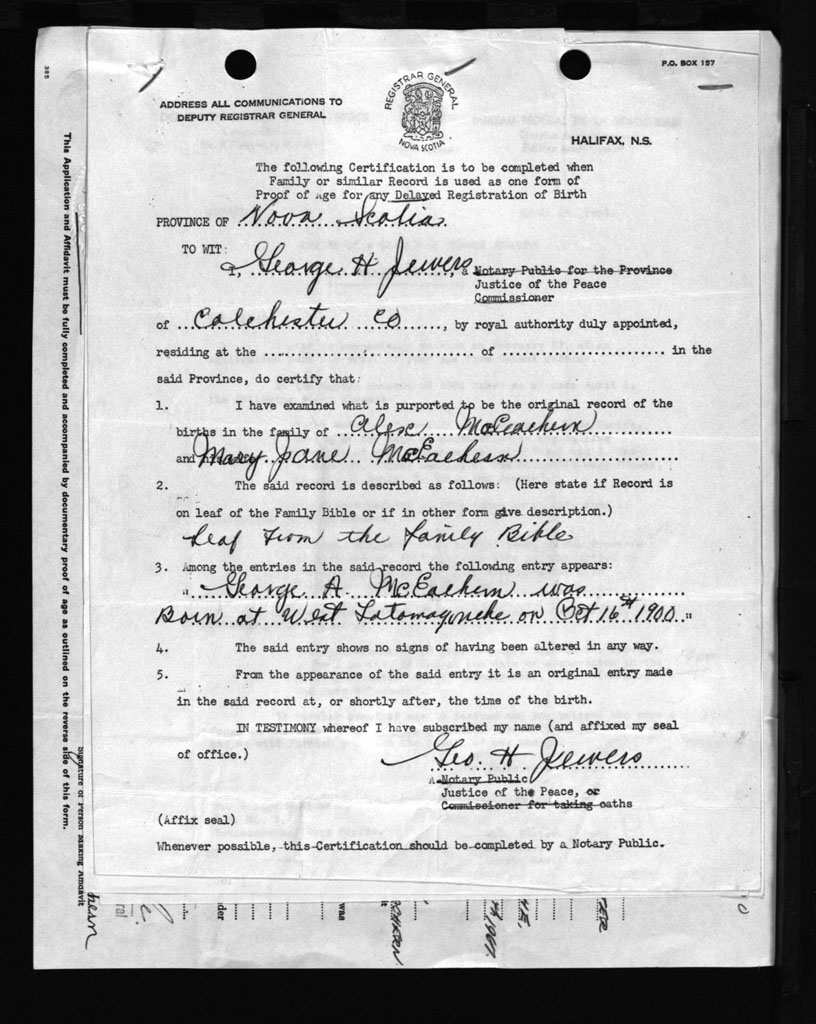 P.O. BOX 157
385
REGISTRAR GENERAL
NOVA SCOTIA
ADDRESS ALL COMMUNICATIONS TO
DEPUTY REGISTRAR GENERAL
HALIFAX, N.S.
The following Certification is to be completed when
Family or similar Record is used as one form of
Proof of Age for any Delayed Registration of Birth
PROVINCE OF Nova Scotia
TO WIT:
I, George H Jewers, a Notary Public for the Province
Justice of the Peace
Commissioner
of Colchester Co, by royal authority duly appointed,
residing at the of in the
said Province, do certify that:
1. I have examined what is purported to be the original record of the
births in the family of Alex McEachern
and Mary Jane McEachern
2. The said record is described as follows: (Here state if Record is
on leaf of the Family Bible or if in other form give description.)
Leaf From the Family Bible
3. Among the entries in the said record the following entry appears:
" George A McEachern was
Born at West Tatamagouche on Oct 16th 1900 "
4. The said entry shows no signs of having been altered in any way.
5. From the appearance of the said entry it is an original entry made
in the said record at, or shortly after, the time of the birth.
IN TESTIMONY whereof I have subscribed my name (and affixed my seal
of office.)
Geo. H Jewers
A Notary Public
Justice of the Peace, or
Commissioner for taking oaths
(Affix seal)
Whenever possible, this Certification should be completed by a Notary Public.
This Application and Affidavit must be fully completed and accompanied by documentary proof of age as outlined on the reverse side of this form.
Signature of Person Making Affidavit
hern
der
was
it